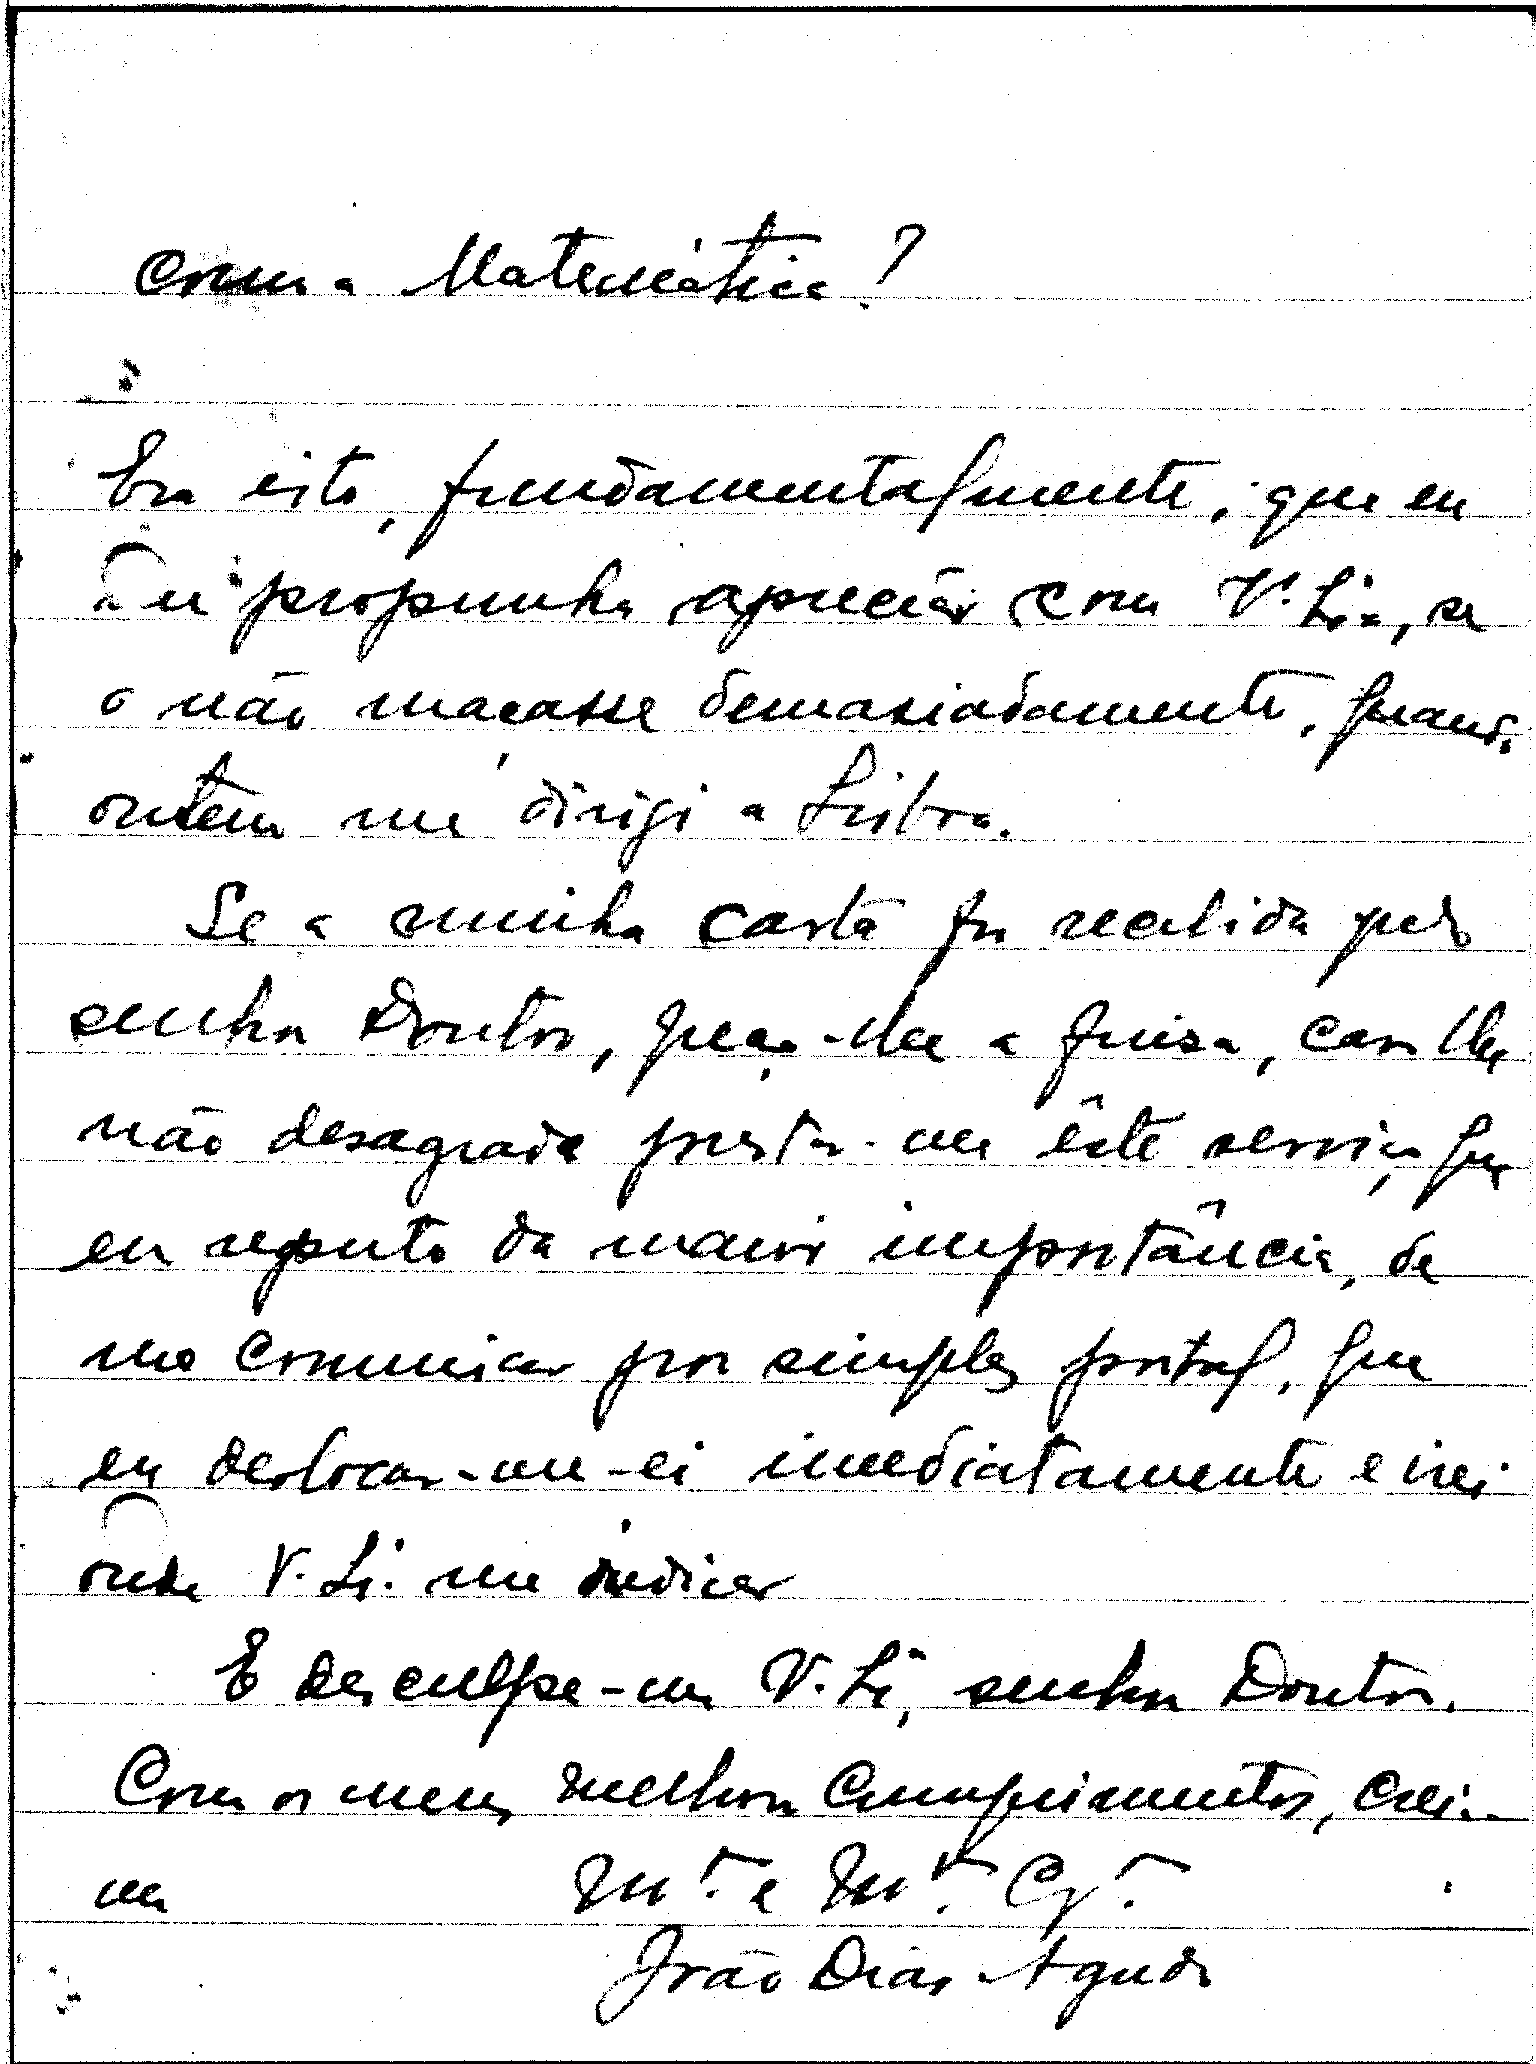 com a Matemática?
Era isto, fundamentalmente, que eu
me propunha apreciar com V. Ex.a, se
o não maçasse demasiadamente, quando
ontem me dirigi a Lisboa.
Se a minha carta foi recebida pelo
senhor Doutor, peço-lhe a fineza, caso lhe
não desagrade prestar-me êste serviço que
eu reputo da maior importância, de
mo comunicar por simples postal, que
eu deslocar-me-ei imediatamente e irei
onde V. Ex. me indicar
E desculpe-me V. Ex., senhor Doutor.
Com os meus melhores cumprimentos, creia-
me Mt. e Mt.
João Dias Agudo